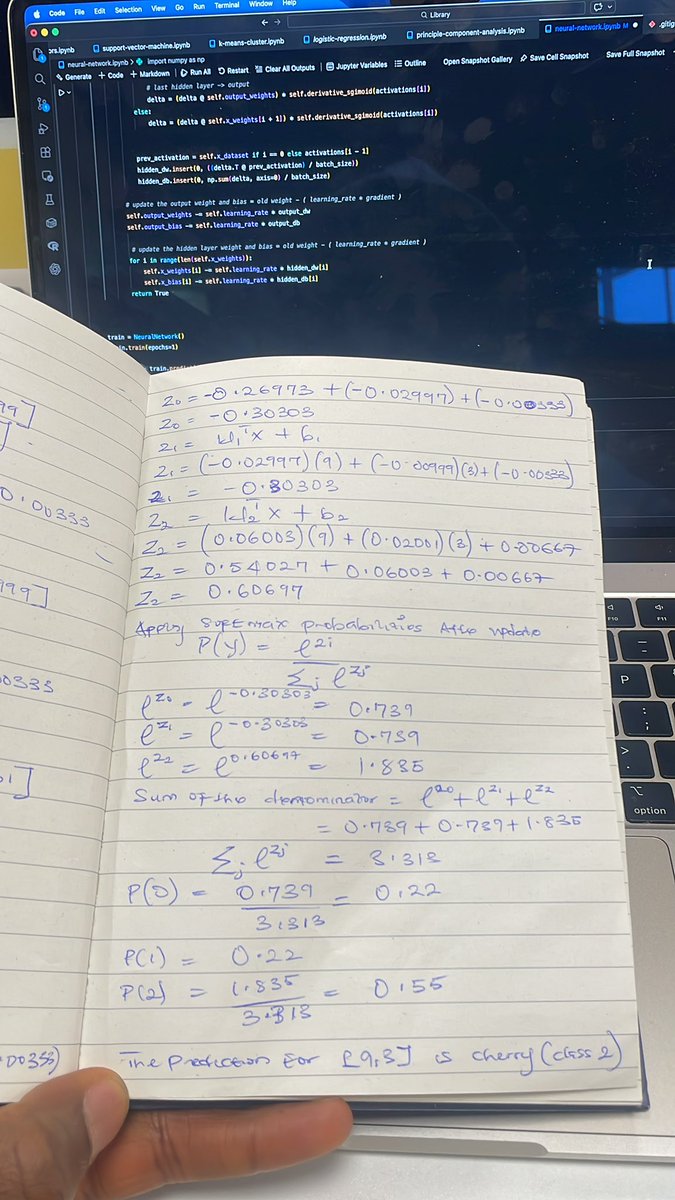 Code File Edit Selection View Go Run Terminal Window Help
Library
ors.ipynb support-vector-machine.ipynb k-means-cluster.ipynb logistic-regression.ipynb principle-component-analysis.ipynb neural-network.ipynb M .gitig
neural-network.ipynb > import numpy as np
Generate + Code + Markdown Run All Restart Clear All Outputs Jupyter Variables Outline Open Snapshot Gallery Save Cell Snapshot Save Full Snapshot
# last hidden layer -> output
delta = (delta @ self.output_weights) * self.derivative_sgimoid(activations[i])
else:
delta = (delta @ self.x_weights[i + 1]) * self.derivative_sgimoid(activations[i])
prev_activation = self.x_dataset if i == 0 else activations[i - 1]
hidden_dw.insert(0, ((delta.T @ prev_activation) / batch_size))
hidden_db.insert(0, np.sum(delta, axis=0) / batch_size)
# update the output weight and bias = old weight - ( learning_rate * gradient )
self.output_weights -= self.learning_rate * output_dw
self.output_bias -= self.learning_rate * output_db
# update the hidden layer weight and bias = old weight - ( learning_rate * gradient )
for i in range(len(self.x_weights)):
self.x_weights[i] -= self.learning_rate * hidden_dw[i]
self.x_bias[i] -= self.learning_rate * hidden_db[i]
return True
train = NeuralNetwork()
in.train(epochs=1)
99]
]
0.00333
999]
00333
01]
.00333)
Z₀ = -0.26973 + (-0.02997) + (-0.00333)
Z₀ = -0.30303
Z₁ = W₁ᵀx + b₁
Z₁ = (-0.02997)(9) + (-0.00999)(3) + (-0.00333)
Z₁ = -0.30303
Z₂ = W₂ᵀx + b₂
Z₂ = (0.06003)(9) + (0.02001)(3) + 0.00667
Z₂ = 0.54027 + 0.06003 + 0.00667
Z₂ = 0.60697
Apply Softmax probabilities After update
P(y) = e^zi
Σj e^zj
e^z0 = e^-0.30303 = 0.739
e^z1 = e^-0.30303 = 0.739
e^z2 = e^0.60697 = 1.835
Sum of the denominator = e^z0 + e^z1 + e^z2
= 0.739 + 0.739 + 1.835
Σj e^zj = 3.313
P(0) = 0.739 = 0.22
3.313
P(1) = 0.22
P(2) = 1.835 = 0.55
3.313
The Prediction for [9,3] is cherry (class 2)
F10
F11
P
option